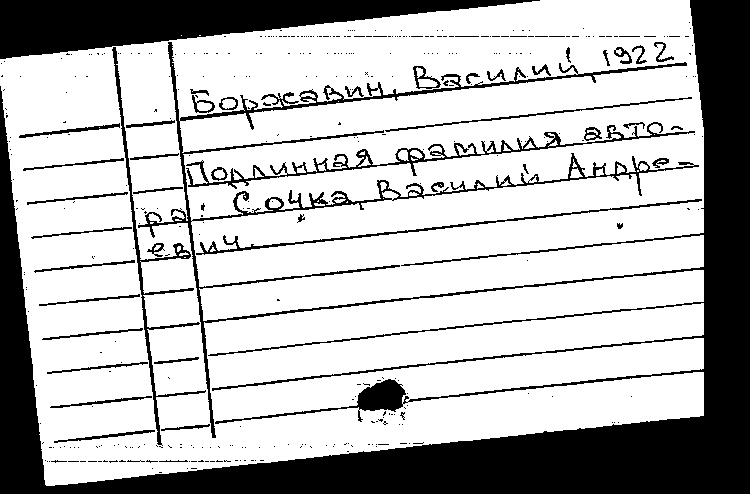 Боржавин, Василий, 1922
Подлинная фамилия авто-
ра: Сочка, Василий Андре-
евич.